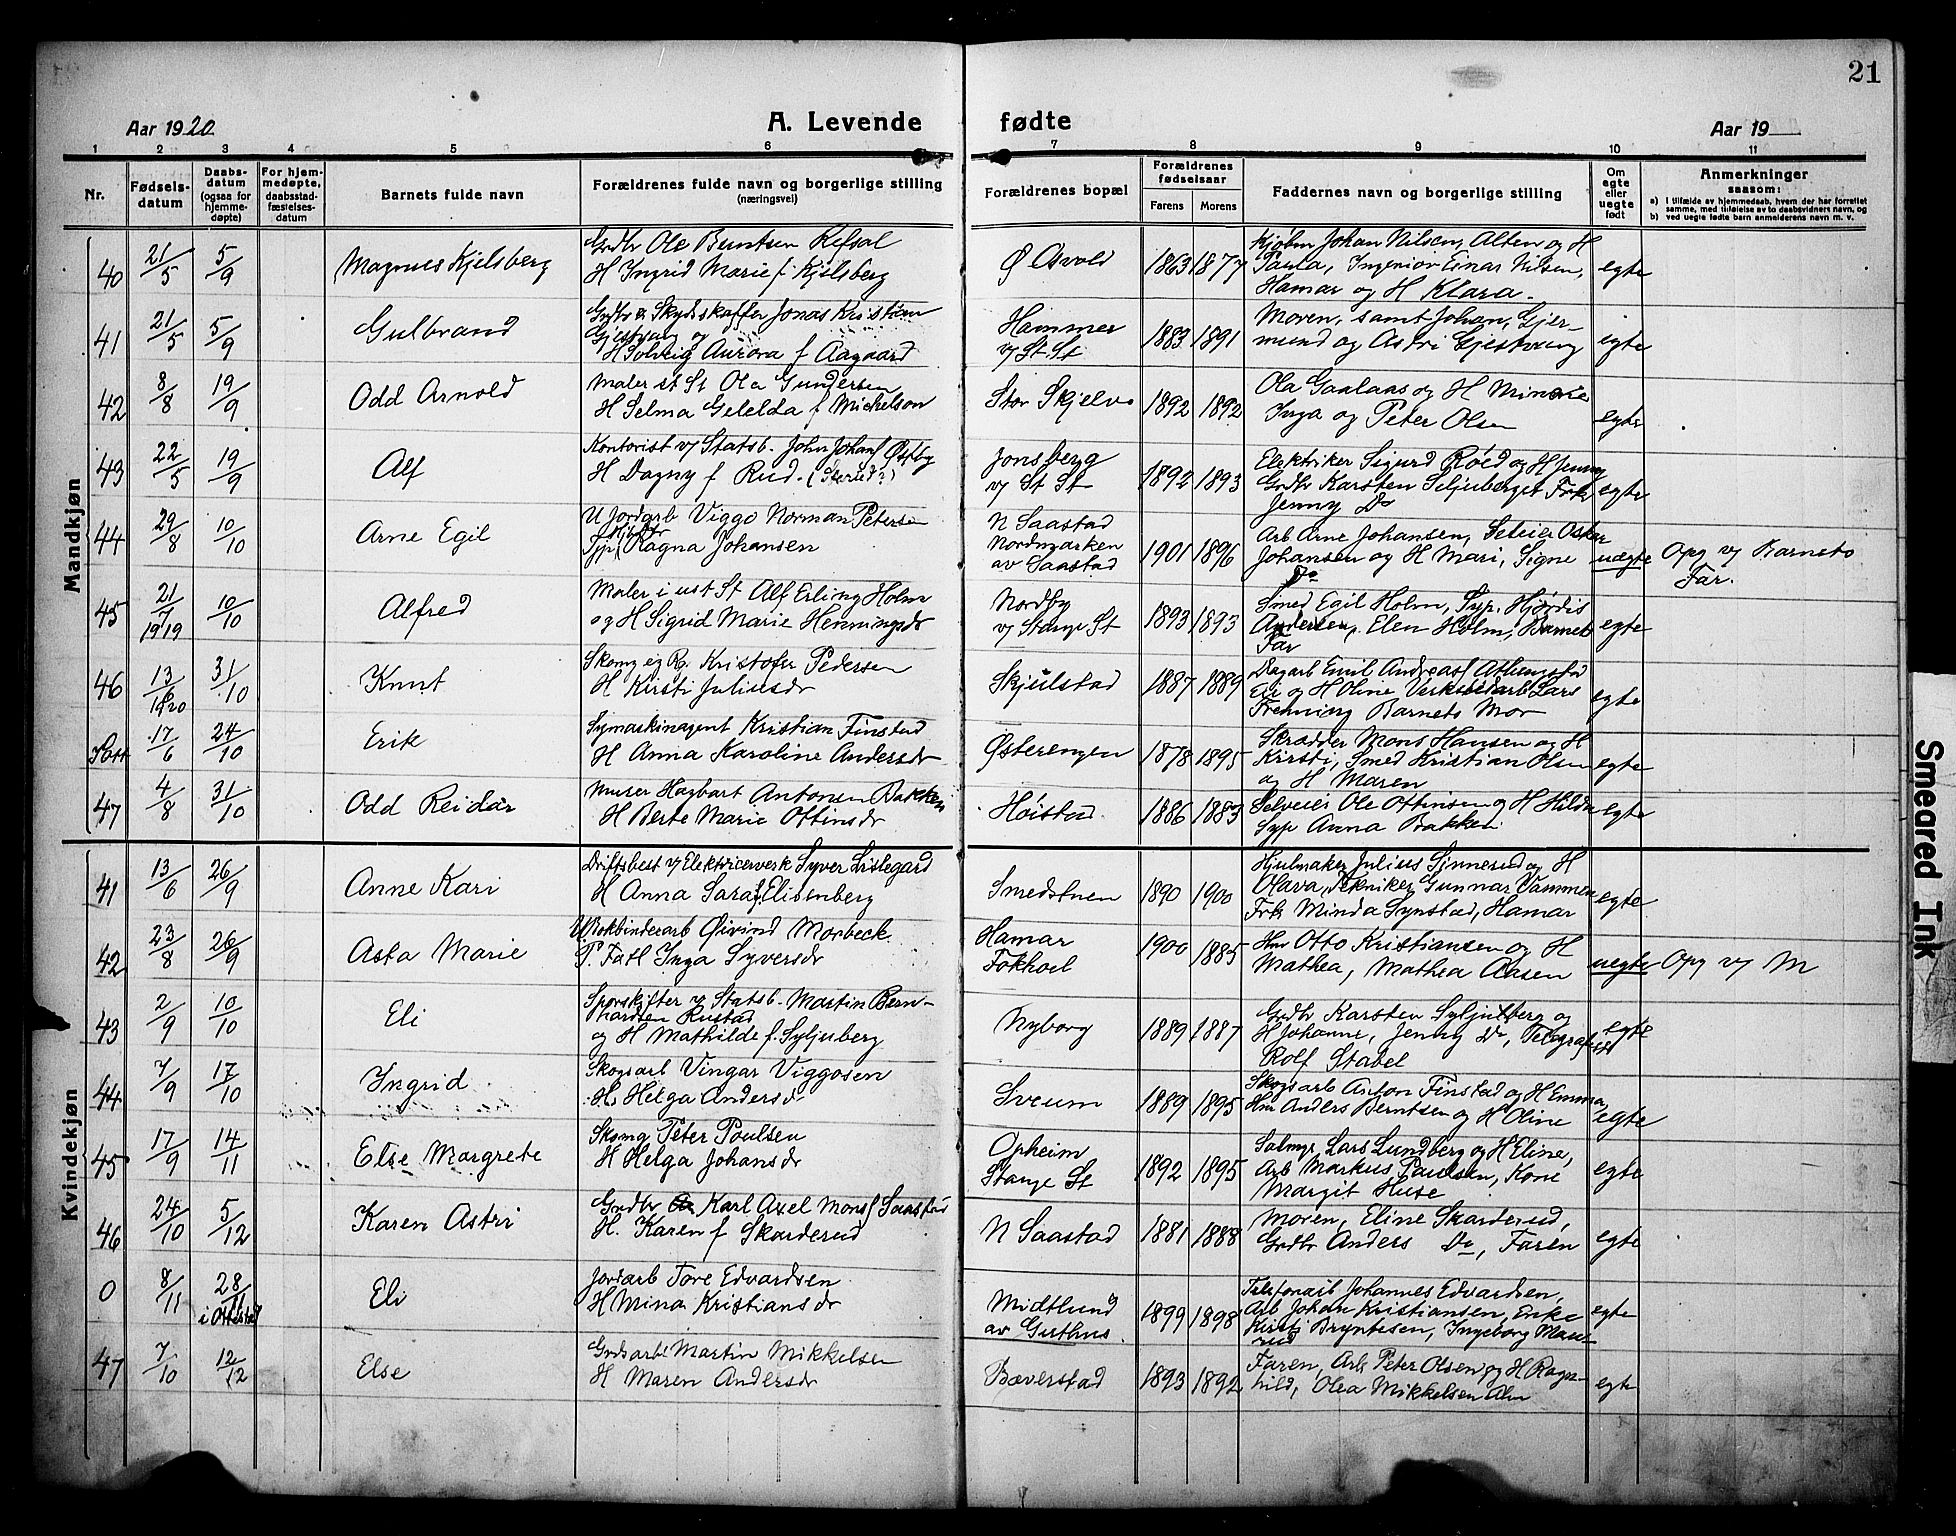 21
Aar 1920
A. Levende fødte
Aar 19
1 2 3 4 5 6 7 8 9 10 11
Nr.
Fødsels-
datum
Daabs-
datum
(ogsaa for
hjemme-
døpte)
For hjem-
medøpte,
daabsstad-
fæstelses-
datum
Barnets fulde navn
Forældrenes fulde navn og borgerlige stilling
(næringsvei)
Forældrenes bopæl
Forældrenes
fødselsaar
Farens Morens
Faddernes navn og borgerlige stilling
Om
egte
eller
uegte
født
Anmerkninger
saasom:
a) I tilfælde av hjemmedaab, hvem der har forrettet
samme, med tilføielse av to daabsvidners navn, og
b) ved uegte fødte barn anmelderens navn m. v.
Mandkjøn
40 21/5 5/9 Magnus Kjelsberg
Grdbr Ole Berntsen Refsal
H Ingrid Marie f. Kjelsberg
Ø Arvold 1863 1877
Kjøbm Johan Nilsen, Alten og H
Paula, Ingeniør Einar Nilsen,
Hamar og H Klara.
egte
41 21/5 5/9 Gulbrand
Grdbr & Skydsskaffer Jonas Kristian
Gjestvang og
H Solveig Aurora f Aagaard
Hammer
v/ St. St
1883 1891
Moren, samt Johan, Gjer-
mund og Astri Gjestvang
egte
42 8/8 19/9 Odd Arnold
Maler st St Ola Gundersen
H Selma Gelelda f Mickelson
Stor Skjelve 1892 1892
Ola Gaalaas og H Minorie
Inga og Peter Olsen
egte
43 22/5 19/9 Alf
Kontorist v/ Statsb. John Johans Østby
H Dagny f Rud. (Storud?)
Jonsberg
v/ St St
1892 1893
Elektriker Sigurd Røed og H Jenny
Grdbr Karsten Seljuberget Frk
Jenny Do
egte
44 29/8 10/10 Arne Egil
U Jordarb Viggo Norman Petersen
Syp Ragna Johansen
N Saastad
Nordmarken
av Saastad
1901 1896
Arb Arne Johansen, Seleier Oskar
Johansen og H Mari, Signe
Do
uegte
Opg v/ Barnets
Far.
45 21/7 1919 10/10 Alfred
Maler i ust St Alf Erling Holm
og H Sigrid Marie Henningsdr
Nordby
v/ Stange St
1893 1893
Smed Egil Holm, Syp. Hjørdis
Andersen, Elen Holm, Barnets
Far
egte
46 13/6 1920 31/10 Knut
Skomg eig Rg. Kristofer Pedersen
H Kirsti Juliusdr
Skjulstad 1887 1889
Dagarb Emil Andreas Athungstad
Eli og H Oline Verkstedarb Lars
Frenning Barnets Mor
egte
17/6 24/10 Erik
Symaskinagent Kristian Finstad
H Anna Karoline Andersdr
Østerengen 1878 1895
Skrædder Mons Hansen og H
Kirsti, Smed Kristian Olsen
og H Maren
egte
47 4/8 31/10 Odd Reidar
Murer Hagbart Antonsen Bakken
H Berte Marie Ottinsdr
Høistad 1886 1883
Selveier Ole Ottinsen og H Hilda
Syp Anna Bakken
egte
Kvindekjøn
41 13/6 26/9 Anne Kari
Driftsbest v/ Elektricverk Syver Lislegard
H Anna Sara f. Elisenberg
Smedstuen 1890 1900
Hjulmaker Julius Sinnerud og H
Olava, Tekniker Gunnar Vammen
Frk Minda Synstad, Hamar
egte
42 23/8 26/9 Asta Marie
U Bokbinderarb Øivind Morbeck
P. Fatl Inga Syversdr
Hamar
Fokhoel
1900 1885
Hm Otto Kristiansen og H
Mathea, Mathea Aasen
uegte
Opg v/ M
43 2/9 10/10 Eli
Sporskifter v/ Statsb. Martin Bern-
hardsen Rustad
og H Mathilde f. Syljuberg
Nyborg 1889 1887
Grdbr Karsten Syljulberg og
H Johanne, Jenny Do, Telegrafist
Rolf Stabel
egte
44 7/9 17/10 Ingrid
Skogsarb Vingar Viggosen
H. Helga Andersdr
Sveum 1889 1895
Skogsarb Anton Finstad og H Emma,
Hm Anders Berntsen og H Oline
egte
45 17/9 14/11 Else Margrete
Skomg Peter Poulsen
H Helga Johansdr
Opheim
Stange St
1892 1895
Salmgr Lars Lundberg og H Eline,
Arb Markus Paulsen, Kone
Margit Huse
egte
46 24/10 5/12 Karen Astri
Grdbr Karl Axel Mons Saastad
H. Karen f Skarderud
N Saastad 1881 1888
Moren, Eline Skarderud,
Grdbr Anders Do, Faren
egte
0 8/11 28/11 i Ottestad Eli
Jordarb Tore Edvardsen
H Mina Kristiansdr
Midtlund
av Guthus
1899 1898
Telefonarb Johannes Edvardsen,
Arb Johan Kristiansen, Enke
Kirsti Bryntesen, Ingeborg Mau-
rud
egte
47 7/10 12/12 Else
Grdsarb Martin Mikkelsen
H Maren Andersdr
Bæverstad 1893 1892
Faren, Arb Peter Olsen og H Ragn-
hild, Olea Mikkelsen Alm
egte
Smeared Ink